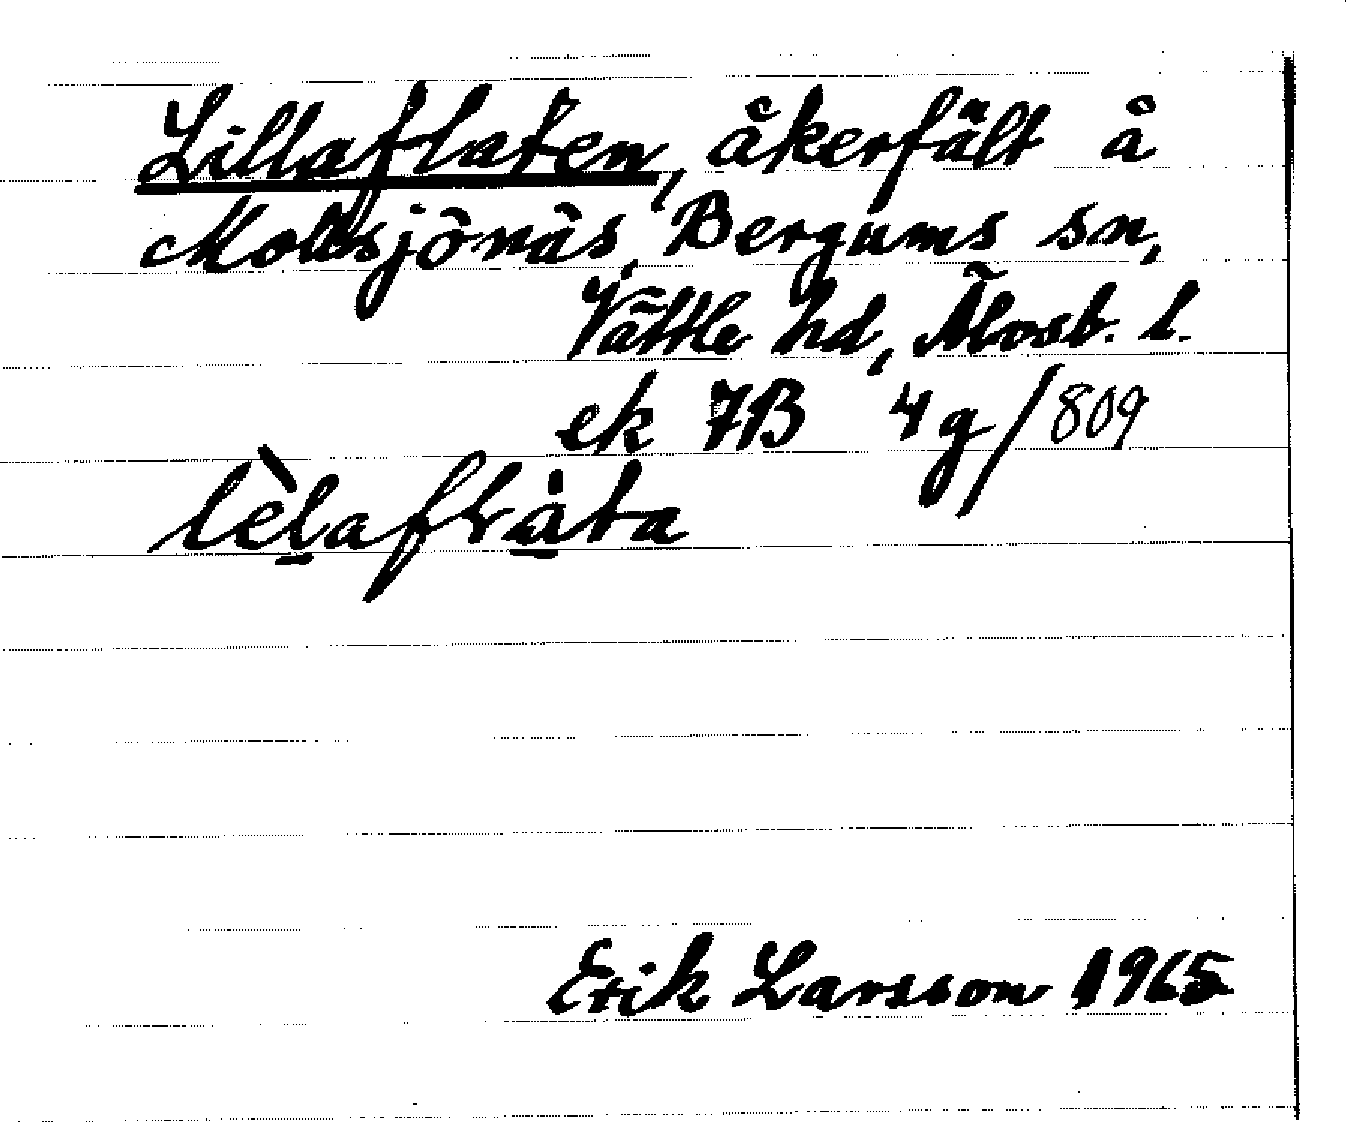 Lillaflaten, åkerfält å
Molsjönäs, Bergums sn,
Vättle hd, Älvsb. l.
ek 7B 4g/809
Erik Larsson 1965